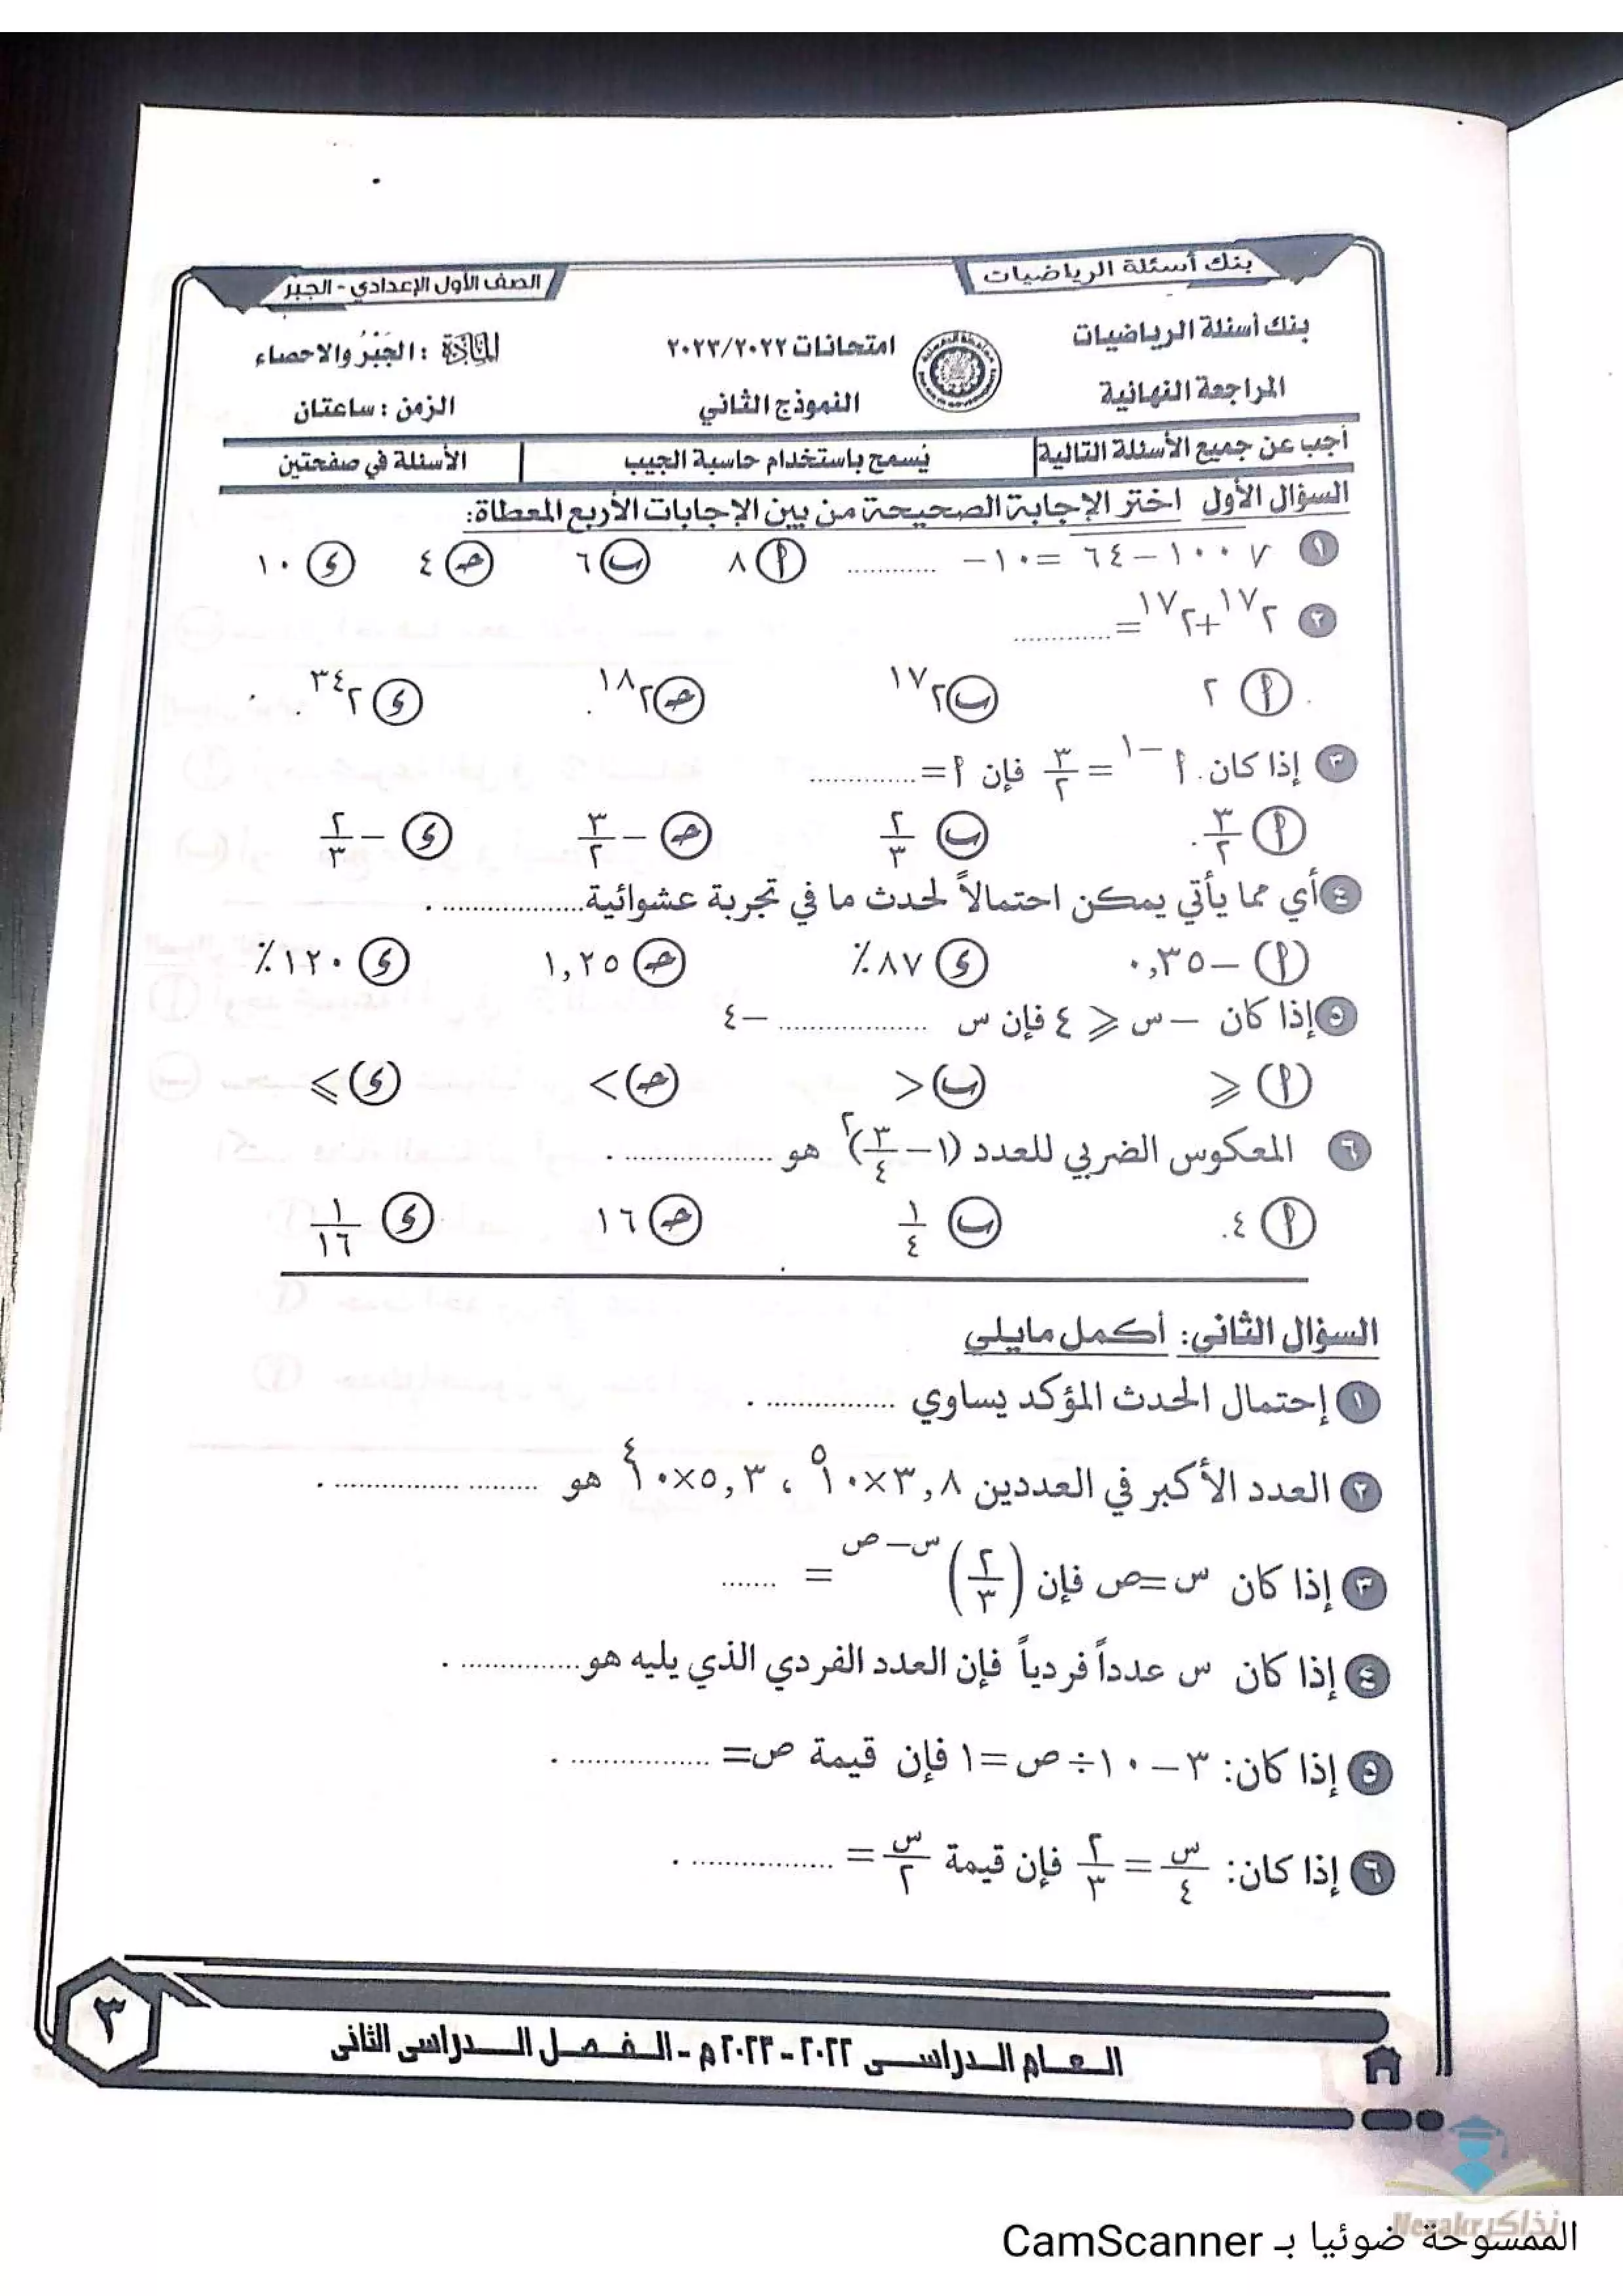 بنك أسئلة الرياضيات
الصف الأول الإعدادي - الجبر
بنك أسئلة الرياضيات
امتحانات ٢٠٢٣/٢٠٢٢
المادة : الجَبْرُ والاحصاء
المراجعة النهائية
النموذج الثاني
الزمن : ساعتان
أجب عن جميع الأسئلة التالية
يُسمح باستخدام حاسبة الجيب
الأسئلة في صفحتين
السؤال الأول اختر الإجابة الصحيحة من بين الإجابات الأربع المعطاة:
١ √١٠٠ − ٦٤ = ١٠ − ............ أ ٨ ب ٦ ج ٤ د ١٠
٢ ٢^١٧ + ٢^١٧ = .............
أ ٢ ب ٢^١٧ ج ٢^١٨ د ٢^٣٤
٣ إذا كان أ^−١ = ٣/٢ فإن أ = ..............
أ ٣/٢ ب ٢/٣ ج −٣/٢ د −٢/٣
٤ أي مما يأتي يمكن احتمالاً لحدث ما في تجربة عشوائية...................
أ −٠,٣٥ د ٨٧٪ ج ١,٢٥ د ١٢٠٪
٥ إذا كان −س ⩾ ٤ فإن س ................... −٤
أ ⩾ ب > ج < د ⩽
٦ المعكوس الضربي للعدد (١ − ٣/٤)^٢ هو ....................
أ ٤ ب ١/٤ ج ١٦ د ١/١٦
السؤال الثاني: أكمل مايلي
١ إحتمال الحدث المؤكد يساوي .................
٢ العدد الأكبر في العددين ٣,٨×١٠^٥ ، ٥,٣×١٠^٤ هو ..........................
٣ إذا كان س=ص فإن (٢/٣)^س−ص = .......
٤ إذا كان س عدداً فردياً فإن العدد الفردي الذي يليه هو ................
٥ إذا كان: ٣ − ١٠ ÷ ص = ١ فإن قيمة ص= ..................
٦ إذا كان: س/٤ = ٢/٣ فإن قيمة س/٢ = ..................
العام الدراسى ٢٠٢٢ - ٢٠٢٣م - الفصل الدراسى الثانى
٣
نذاكر Nezakr
الممسوحة ضوئيا بـ CamScanner